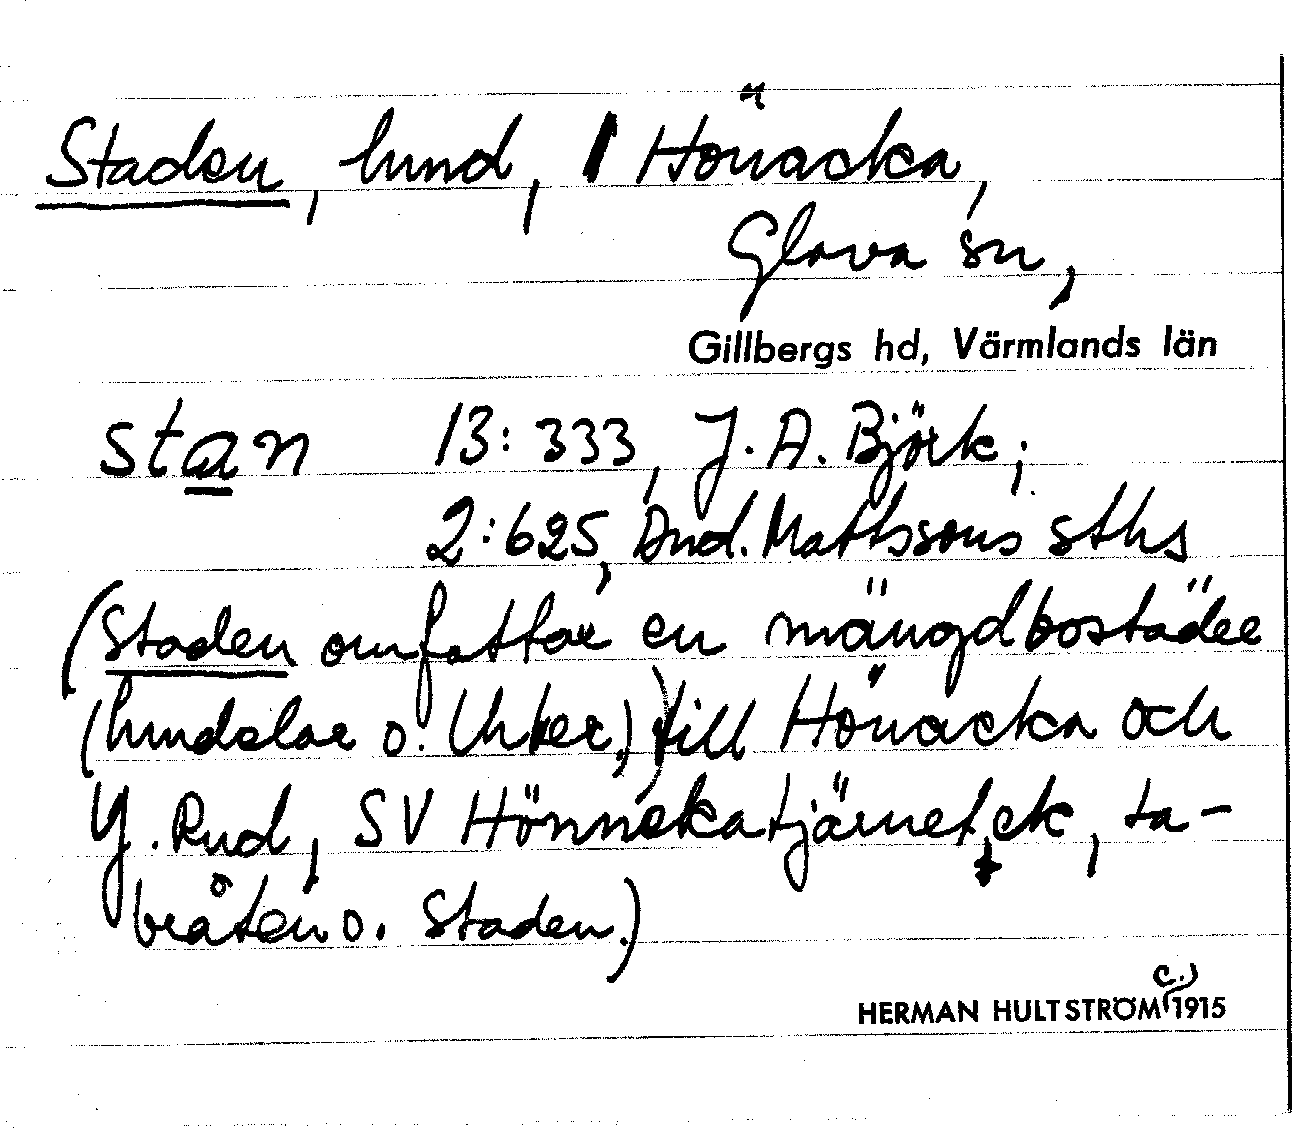 Staden, hmd, / Hönacka,
Glava sn,
Gillbergs hd, Värmlands län
stan 13:333, J. A. Björk;
2:625, And. Mattssons sths
(Staden omfattar en mängd bostäder
(hmdelar o. lht er,) till Hönacka och
Y. Rud, SV Hönnekatjärnet, ek, ta-
bråten o. Staden.)
HERMAN HULTSTRÖM (c.) 1915